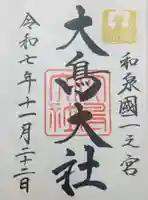 和泉國一之宮
大鳥大社
令和七年十一月二十二日